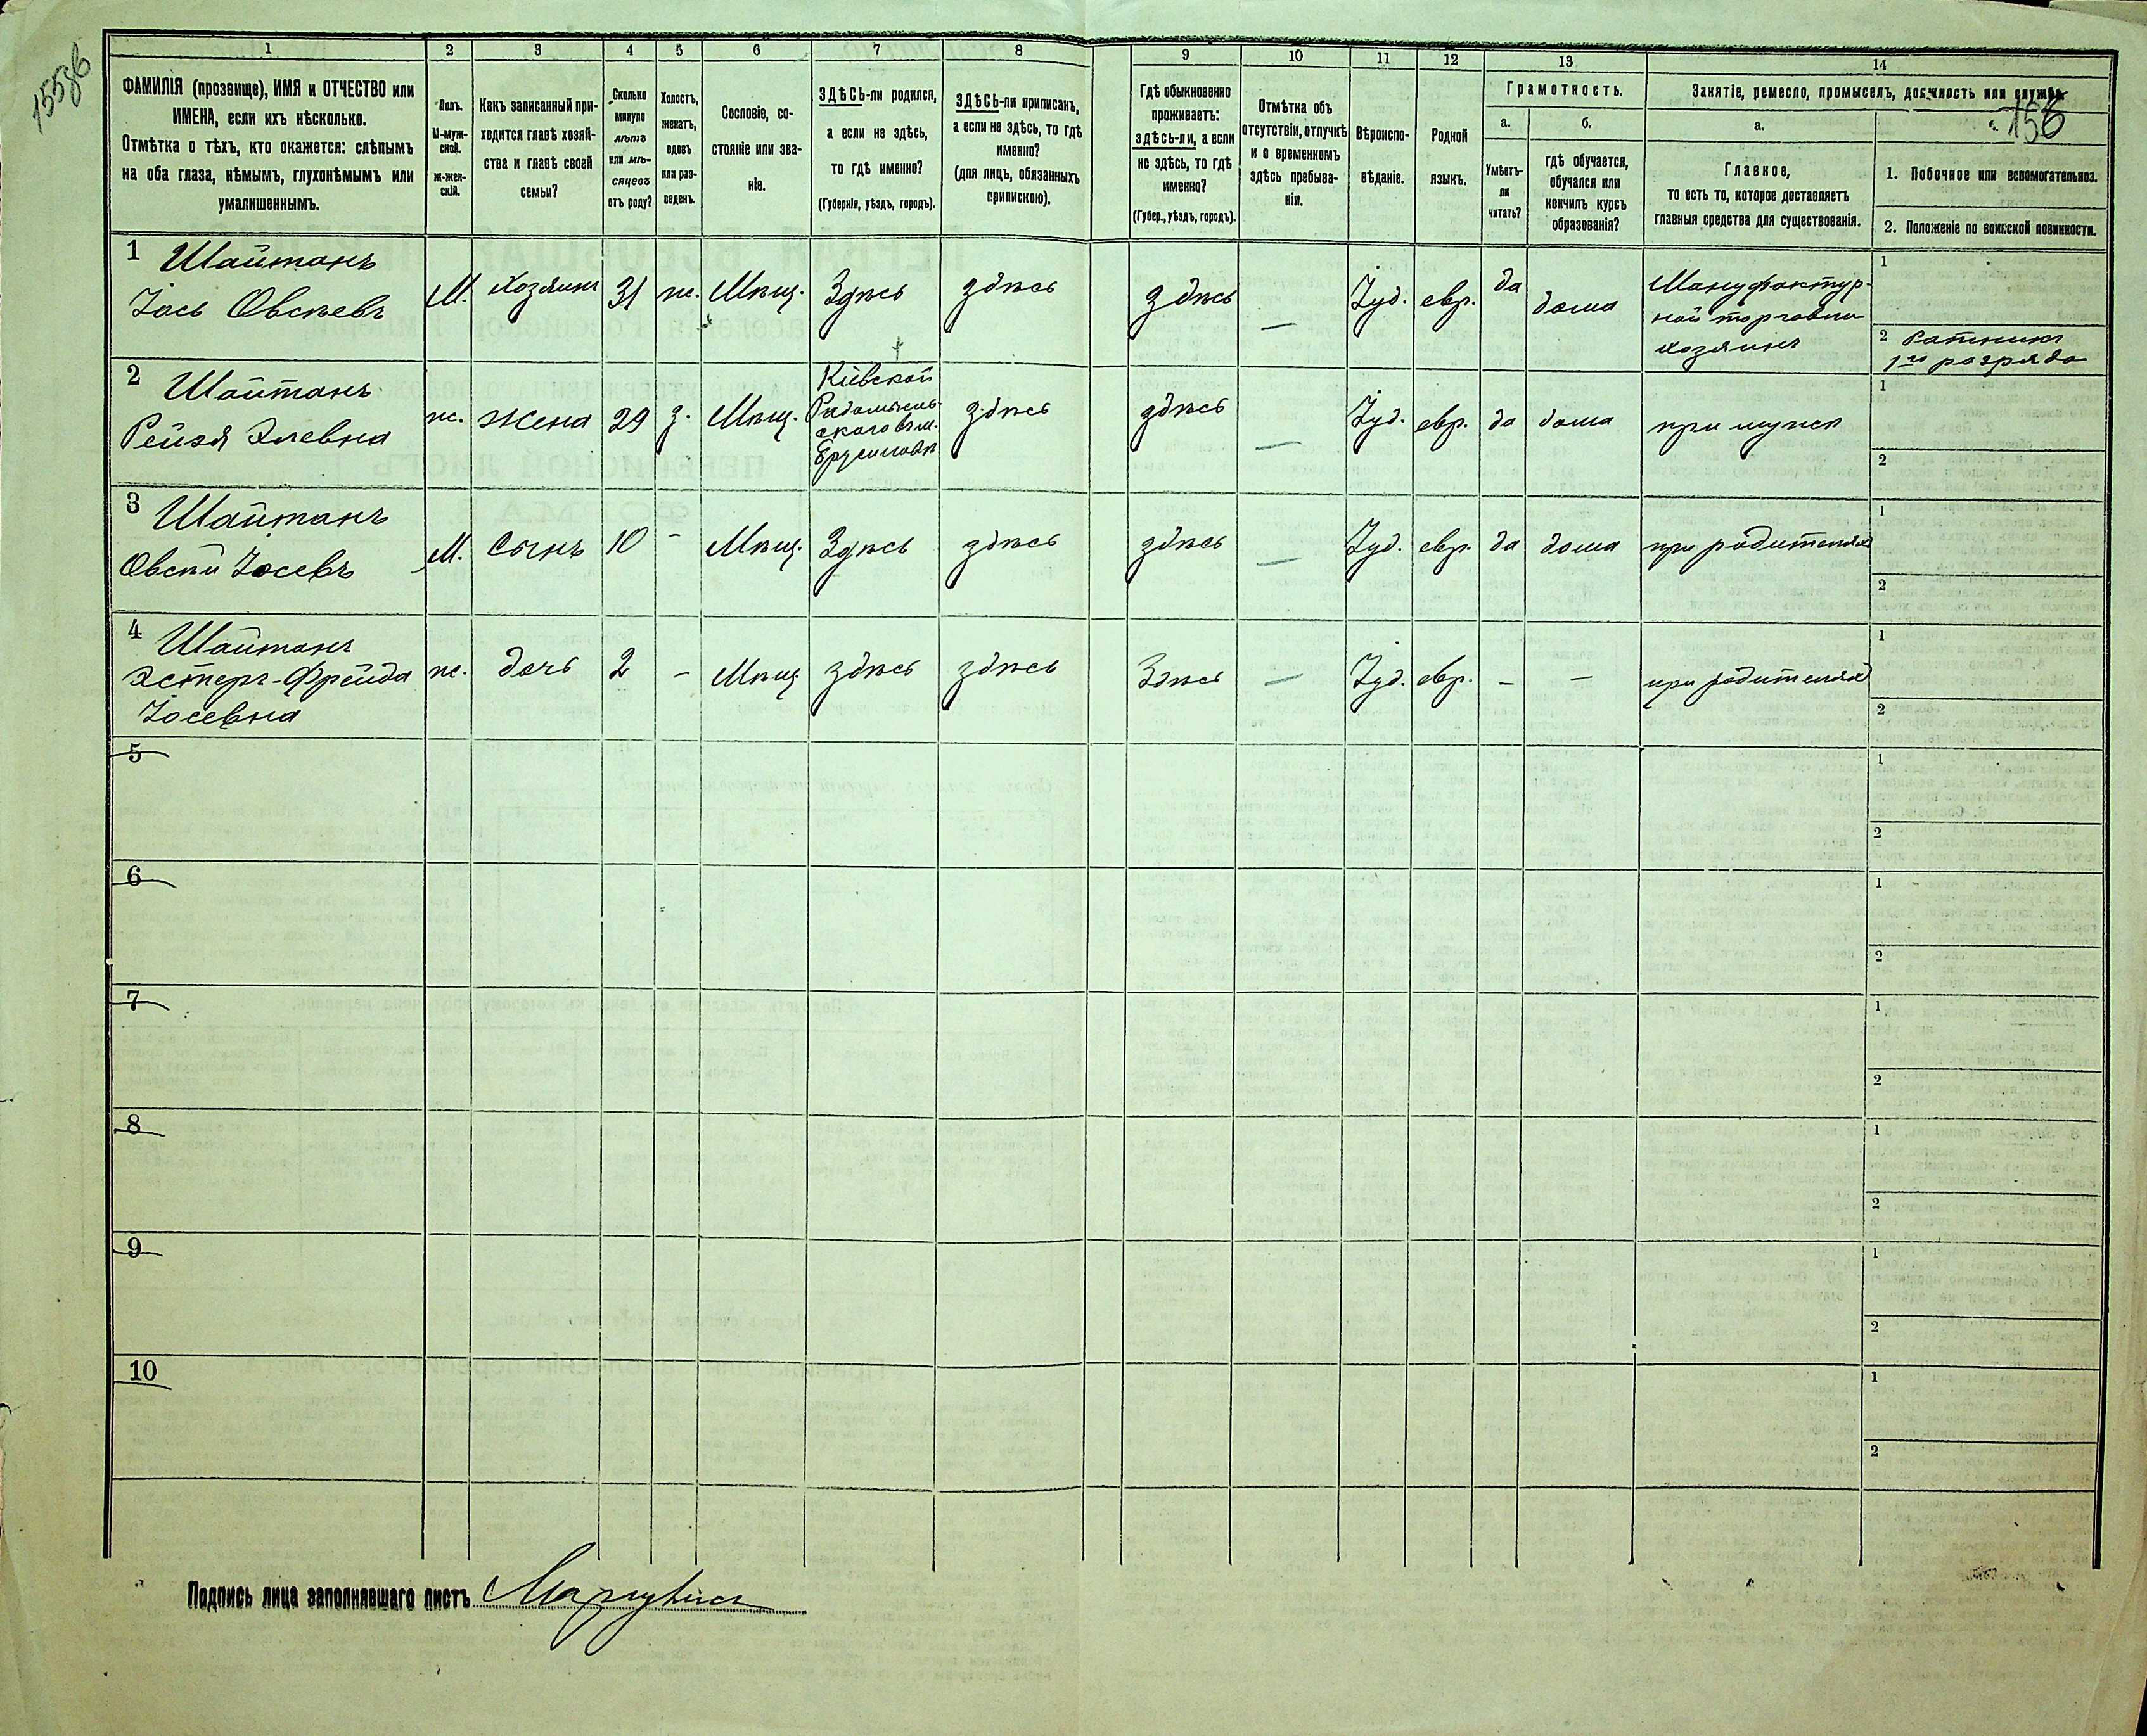 15586
156
1
2
3
4
5
6
7
8
9
10
11
12
13
14
ФАМИЛІЯ (прозвище), ИМЯ и ОТЧЕСТВО или
ИМЕНА, если ихъ нѣсколько.
Отмѣтка о тѣхъ, кто окажется: слѣпымъ
на оба глаза, нѣмымъ, глухонѣмымъ или
умалишеннымъ.
Полъ.
М-муж-
ской.
ж-жен-
скій.
Какъ записанный при-
ходится главѣ хозяй-
ства и главѣ своей
семьи?
Сколько
минуло
лѣтъ
или мѣ-
сяцевъ
отъ роду?
Холостъ,
женатъ,
вдовъ
или раз-
веденъ.
Сословіе, со-
стояніе или зва-
ніе.
ЗДѢСЬ-ли родился,
а если не здѣсь,
то гдѣ именно?
(Губернія, уѣздъ, городъ).
ЗДѢСЬ-ли приписанъ,
а если не здѣсь, то гдѣ
именно?
(для лицъ, обязанныхъ
припискою).
Гдѣ обыкновенно
проживаетъ:
здѣсь-ли, а если
не здѣсь, то гдѣ
именно?
(Губер., уѣздъ, городъ).
Отмѣтка объ
отсутствіи, отлучкѣ
и о временномъ
здѣсь пребыва-
ніи.
Вѣроиспо-
вѣданіе.
Родной
языкъ.
Грамотность.
а.
б.
Умѣетъ-
ли
читать?
гдѣ обучается,
обучался или
кончилъ курсъ
образованія?
Занятіе, ремесло, промыселъ, должность или служба.
а.
Главное,
то есть то, которое доставляетъ
главныя средства для существованія.
1. Побочное или вспомогательное.
2. Положеніе по воинской повинности.
1 Шайтанъ
Іось Овсѣевъ
М.
Хозяинъ
31
ж.
Мѣщ.
Здѣсь
здѣсь
здѣсь
—
Іуд.
евр.
да
дома
Мануфактур-
ной торговли
хозяинъ
1
2 Ратникъ
1го разряда
2 Шайтанъ
Рейзя Элевна
ж.
жена
29
з.
Мѣщ.
Кіевской
Радомысль-
скаго въ м.
Брусиловѣ
здѣсь
здѣсь
—
Іуд.
евр.
да
дома
при мужѣ
1
2
3 Шайтанъ
Овсѣй Іосевъ
М.
сынъ
10
-
Мѣщ.
Здѣсь
здѣсь
здѣсь
—
Іуд.
евр.
да
дома
при родителяхъ
1
2
4 Шайтанъ
Эстеръ-Фрейда
Іосевна
ж.
дочь
2
-
Мѣщ.
здѣсь
здѣсь
Здѣсь
—
Іуд.
евр.
-
-
при родителяхъ
1
2
5
1
2
6
1
2
7
1
2
8
1
2
9
1
2
10
1
2
Подпись лица заполнявшаго листъ